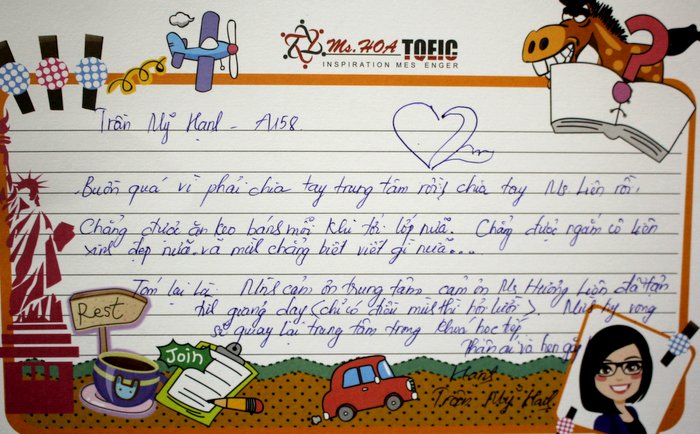 Ms.HOA TOEIC
INSPIRATION MES ENGER
Trần Mỹ Hạnh - A158
Buồn quá vì phải chia tay trung tâm rồi, chia tay Ms Liên rồi.
Chẳng được ăn kẹo bánh mỗi khi tới lớp nữa. Chẳng được ngắm cô Liên
xinh đẹp nữa. và mình chẳng biết viết gì nữa...
Tóm lại là: Mình cảm ơn trung tâm cảm ơn Ms Hương Liên đã tận
tình giảng dạy (chỉ có điều mình thì lười). Mình hy vọng
sẽ quay lại trung tâm trong khoá học tới
Thân ái và hẹn gặp
Hạnh
Trần Mỹ Hạnh
Rest
Join